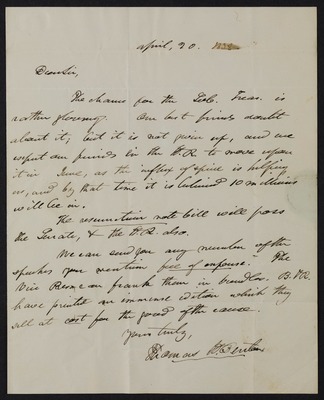 april, 20.
Dear Sir,
The chance for the Sub. Treas. is
rather gloomy. Our best friends doubt
about it; but it is not given up, and we
expect our friends in the H.R to move upon
it in June, as the influx of specie is helping
us, and by that time it is believed 10 millions
will be in.
The resumption note bill will pass
the Senate, & the H.R. also.
We can send you any number of the
speeches you mention free of expense. The
Vice can frank them in bundles. B. & R.
have printed an immense edition which they
sell at cost for the good of the cause.
yours truly,
Thomas H. Benton